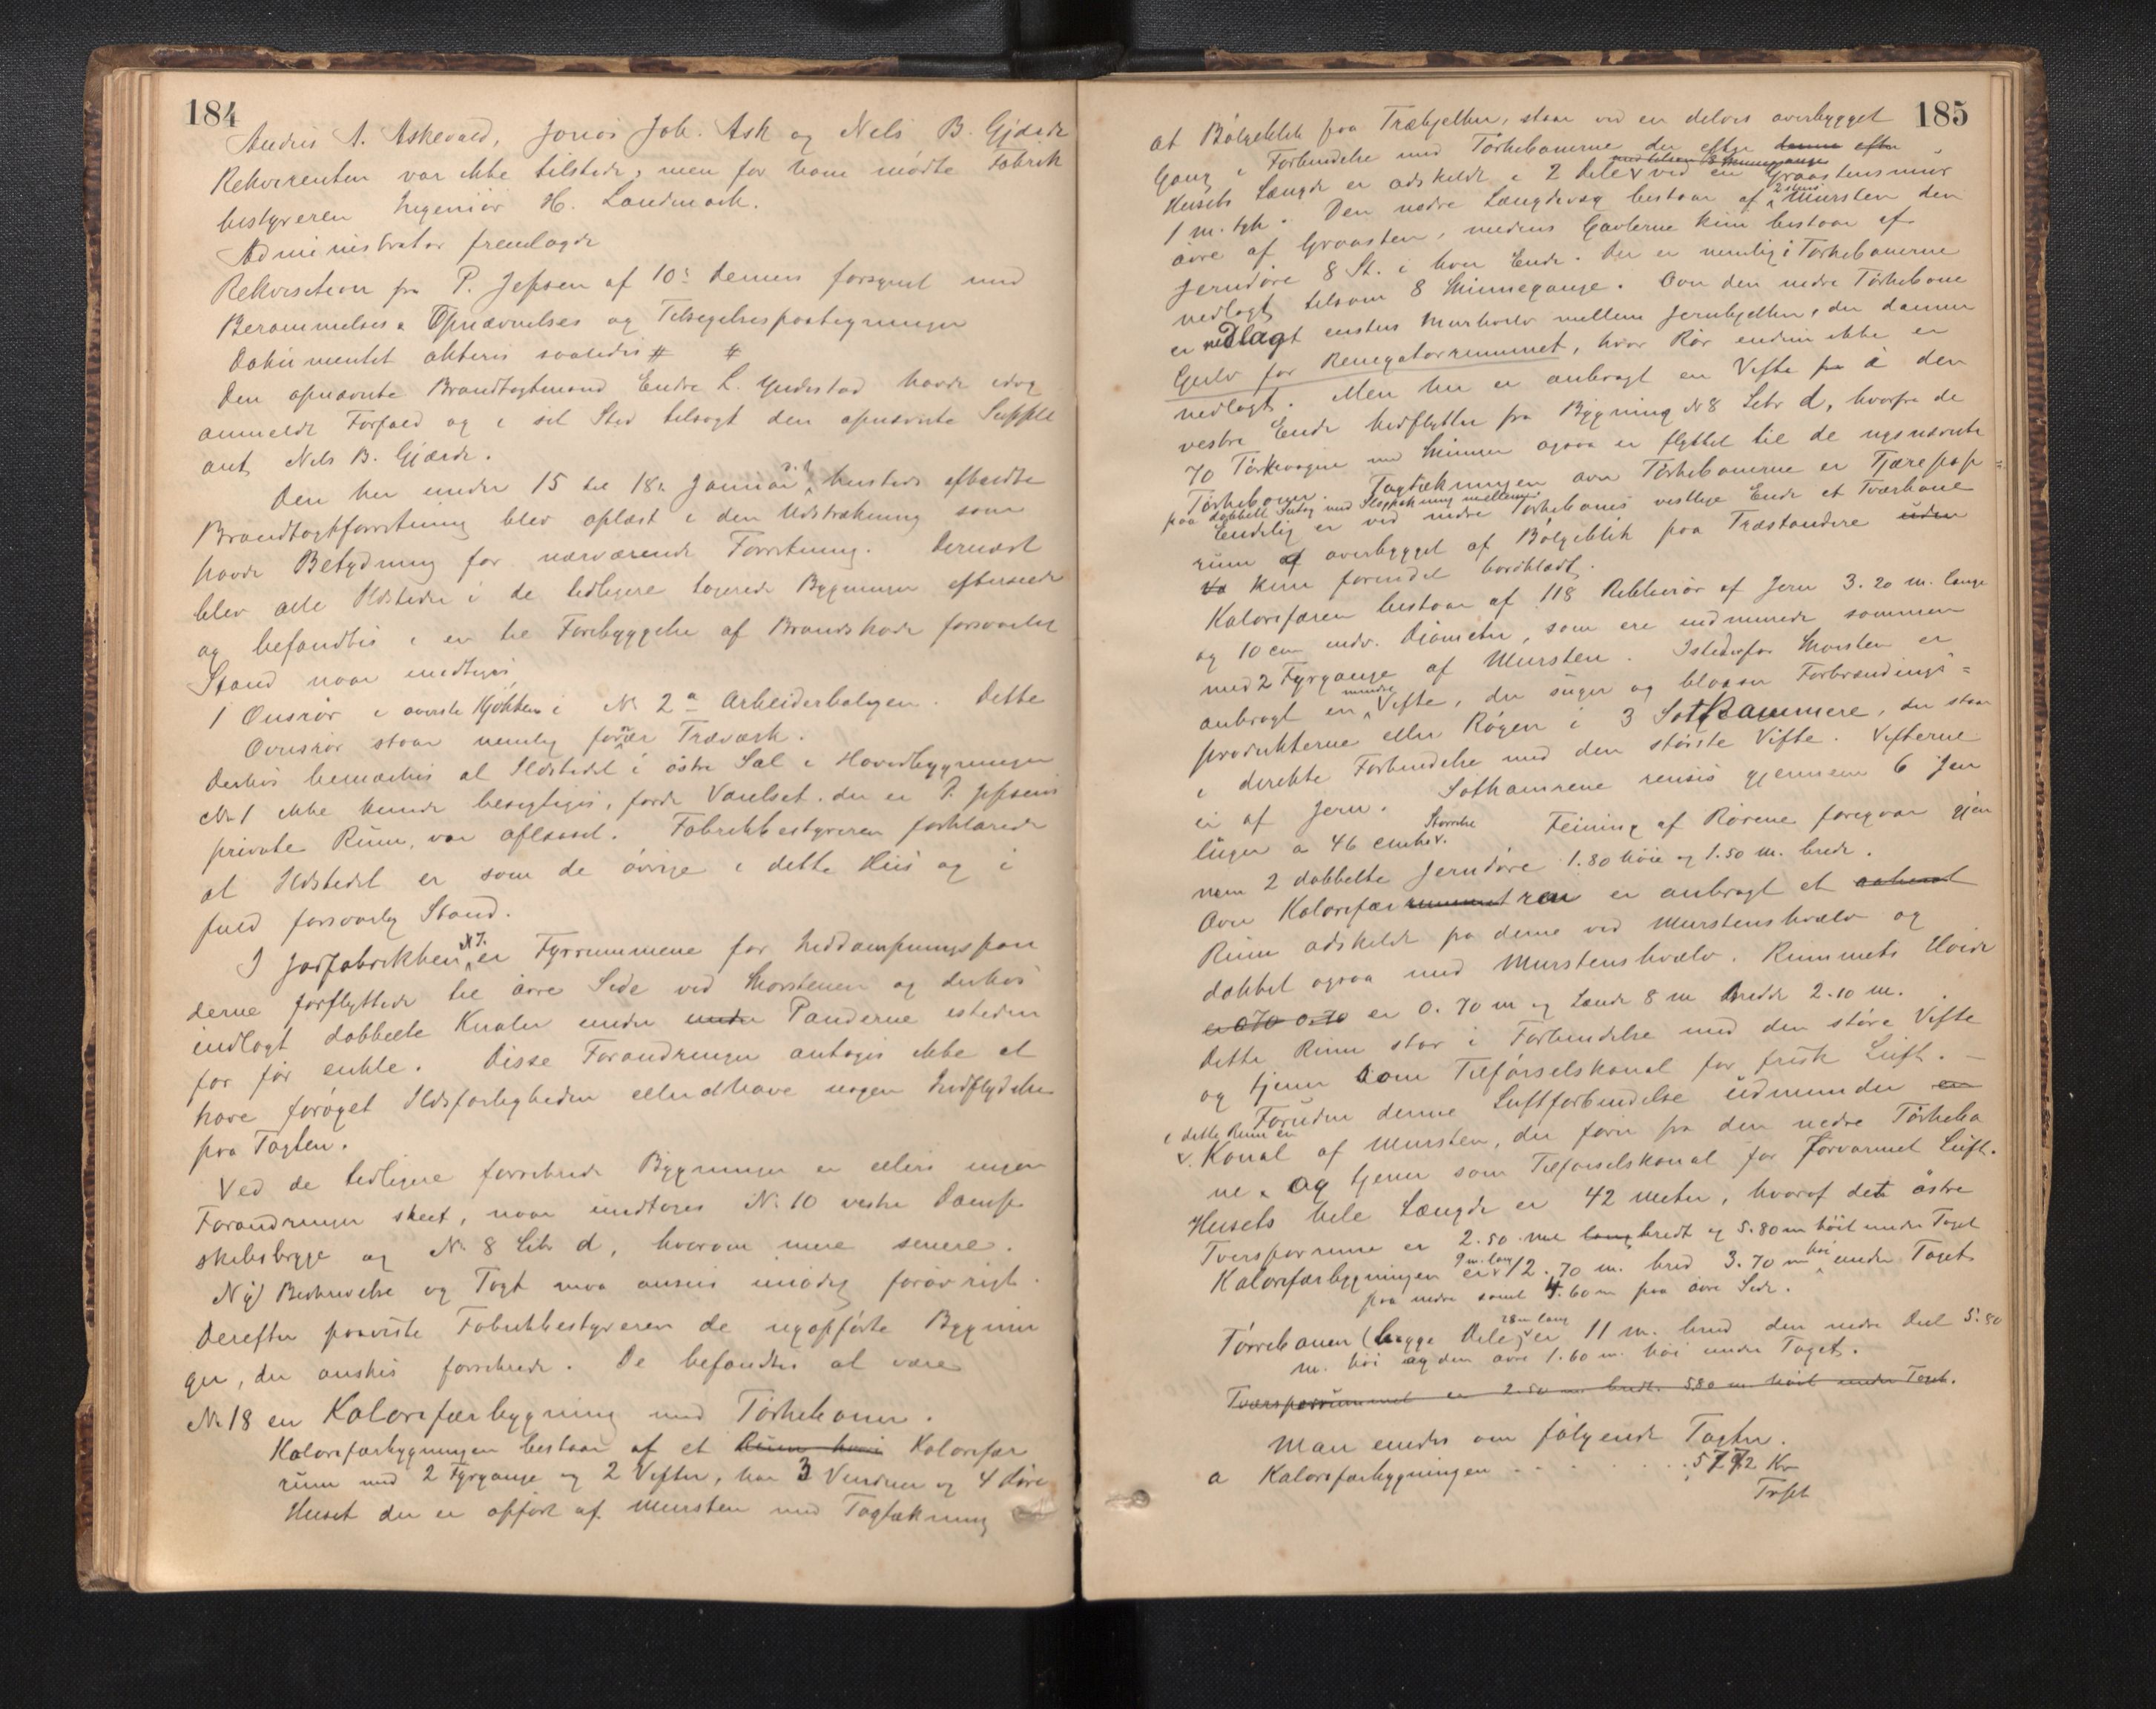 184
Andreas A. Askevold, Jonas Joh. Ask og Nels B. Gjærde
Rekvirenten var ikke tilstede, men for ham mødte Fabrik
bestyreren Ingeniør H. Landmark.
Administrator fremlagde
Rekvisition fra P. Jepsen af 10de dennes forsynet med
Berammelses Opnævnelses og Tilsigelsespaategninger
Dokumentet akteres saaledes # #
Den opnævnte Brandtagtmand Endre L. Yndestad havde idag
anmeldt Forfald og i sit Sted tilsagt den opnævnte Supple
ant Nels B. Gjærde.
Den her under 15 til 18de Januar d. A. hersteds afholdte
Brandtagtforretning blev oplæst i den Udstrækning som
havde Betydning for nærværende Forretning. Dernæst
blev alle Ildsteder i de tidligere taxerede Bygninger efterseede
og befandtes i en til Forebyggelse af Brandskade forsvarlig
Stand naar undtages
1 Ovnsrør i øverste Kjøkken i No 2 a Arbeiderboligen. Dette
Ovnsrør staar nemlig for nær Træværk.
Derhos bemærkes at Ildstedet i østre Sal i Hovedbygningen
No 1 ikke kunde besigtiges, fordi Værelset, der er P. Jepsens
private Rum, var aflaaset. Fabrikbestyreren forklarede
at Ildstedet er som de øvrige i dette Hus og i
fuld forsvarlig Stand.
I Jodfabrikken No 7. er Fyrrummene for Inddampningspan
derne forflyttede til øvre Side ved Skorstenen og derhos
indlagt dobbelte Kanaler under under Panderne isteden
for før enkle. Disse Forandringer antages ikke at
have forøget Ildsfarligheden eller at have nogen Indflydelse
paa Taxten.
Ved de tidligere forsikrede Bygninger er ellers ingen
Forandringer skeet, naar undtages No. 10 vestre Damp
skibsbrygge og No 8 Litr d, hvorom mere senere.
Ny Beskrivelse og Taxt maa ansees unødig forøvrigt.
Derefter paaviste Fabrikbestyreren de nyopførte Bygnin
ger, der ønskes forsikrede. De befandtes at være
No 18 en Kalorifærbygning med Tørkebaner.
Kalorifærbygningen bestaar af et Rum Kalorifær
rum med 2 Fyrgange og 2 Vifter, har 3 Vinduer og 4 Døre
Huset der er opført af Mursten med Tagtækning
185
at Bølgeblik paa Træbjelker, staar ved en delvis overbygget
Gang i Forbindelse med Tørkebanerne der efter denne efter
Husets Længde er adskilt i 2 Dele v ved en Graastensmur
med tilsam 8 Skinnegange
1 m. tyk. Den nedre Længdevæg bestaar af 2 stens Mursten den
øvre af Graasten, medens Gavlerne kun bestaar af
Jerndøre 8 St. i hver Ende. Der er nemlig i Tørkebanerne
nedlagt tilsam 8 Skinnegange. Over den nedre Tørkebane
er nedlagt enstens Murhvælv mellem Jernbjelker, der danner
Gulv for Renegatorrummet, hvor Rør endnu ikke er
nedlagt. Men her er anbragt en Vifte fra i den
vestre Ende hidflyttet fra Bygning No 8 Litr d, hvorfra de
70 Tørkevogne med Skinner ogsaa er flyttet til de nysnævnte
Tørkebaner. Tagtækningen over Tørkebanerne er Tjærepap
paa dobbelt Sutag med Stoppakning mellem.
Endelig er ved nedre Tørkebanes vestlige Ende et Tværbane
rum af overbygget af Bølgeblik paa Træstandere uden
kun forinden bordklædt.
Kalorifæren bestaar af 118 Ribberør af Jern 3.20 m. lange
og 10 cm indv. Diameter, som ere indmurede sammen
med 2 Fyrgange af Mursten. Istedetfor Skorsten er
anbragt en mindre Vifte, der suger og blæser Forbrændings=
produkterne eller Røgen i 3 Sotkammere, der staar
i direkte Forbindelse med den største Vifte. Vifterne
er af Jern. Sotkamrene renses gjennem 6 Jern
luger a 46 cm Størrelse. Feining af Rørene foregaar gjen
nem 2 dobbelte Jerndøre 1.80 høie og 1.50 m. brede.
Over Kalorifær rummet ren er anbragt et
Rum adskilt fra denne ved Murstenshvælv og
dækket ogsaa med Murstenshvælv. Rummets Høide
er 070 0.70 er 0.70 m og Længde 8 m bredde 2.10 m.
Dette Rum star i Forbindelse med den større Vifte
og tjener som Tilførselskanal for frisk Luft. —
Foruden denne Luftforbindelse udmunder en
i dette Rum en
v. Kanal af Mursten, der fører fra den nedre Tørkeba
ne, og tjener som Tilførselskanal for forvarmet Luft.
Husets hele Længde er 42 meter, hvoraf det østre
Tversporrum er 2.50 m lang bredt og 5.80 m høit under Taget
Kalorifærbygningen er 9 m. lang 12.70 m. bred 3.70 m høi under Taget
paa nedre samt 4.60 m paa øvre Side.
Tørrebanen (begge Dele) v er 28 m lang 11 m. bred den nedre Del 5.80
m. høi og den øvre 1.60 m. høi under Taget.
Tværsporrummet er 2.50 m. bredt. 5.80 m. høit under Taget.
Man enedes om følgende Taxter.
a Kalorifærbygningen . . . . . . . 5772 Kr
Trspt